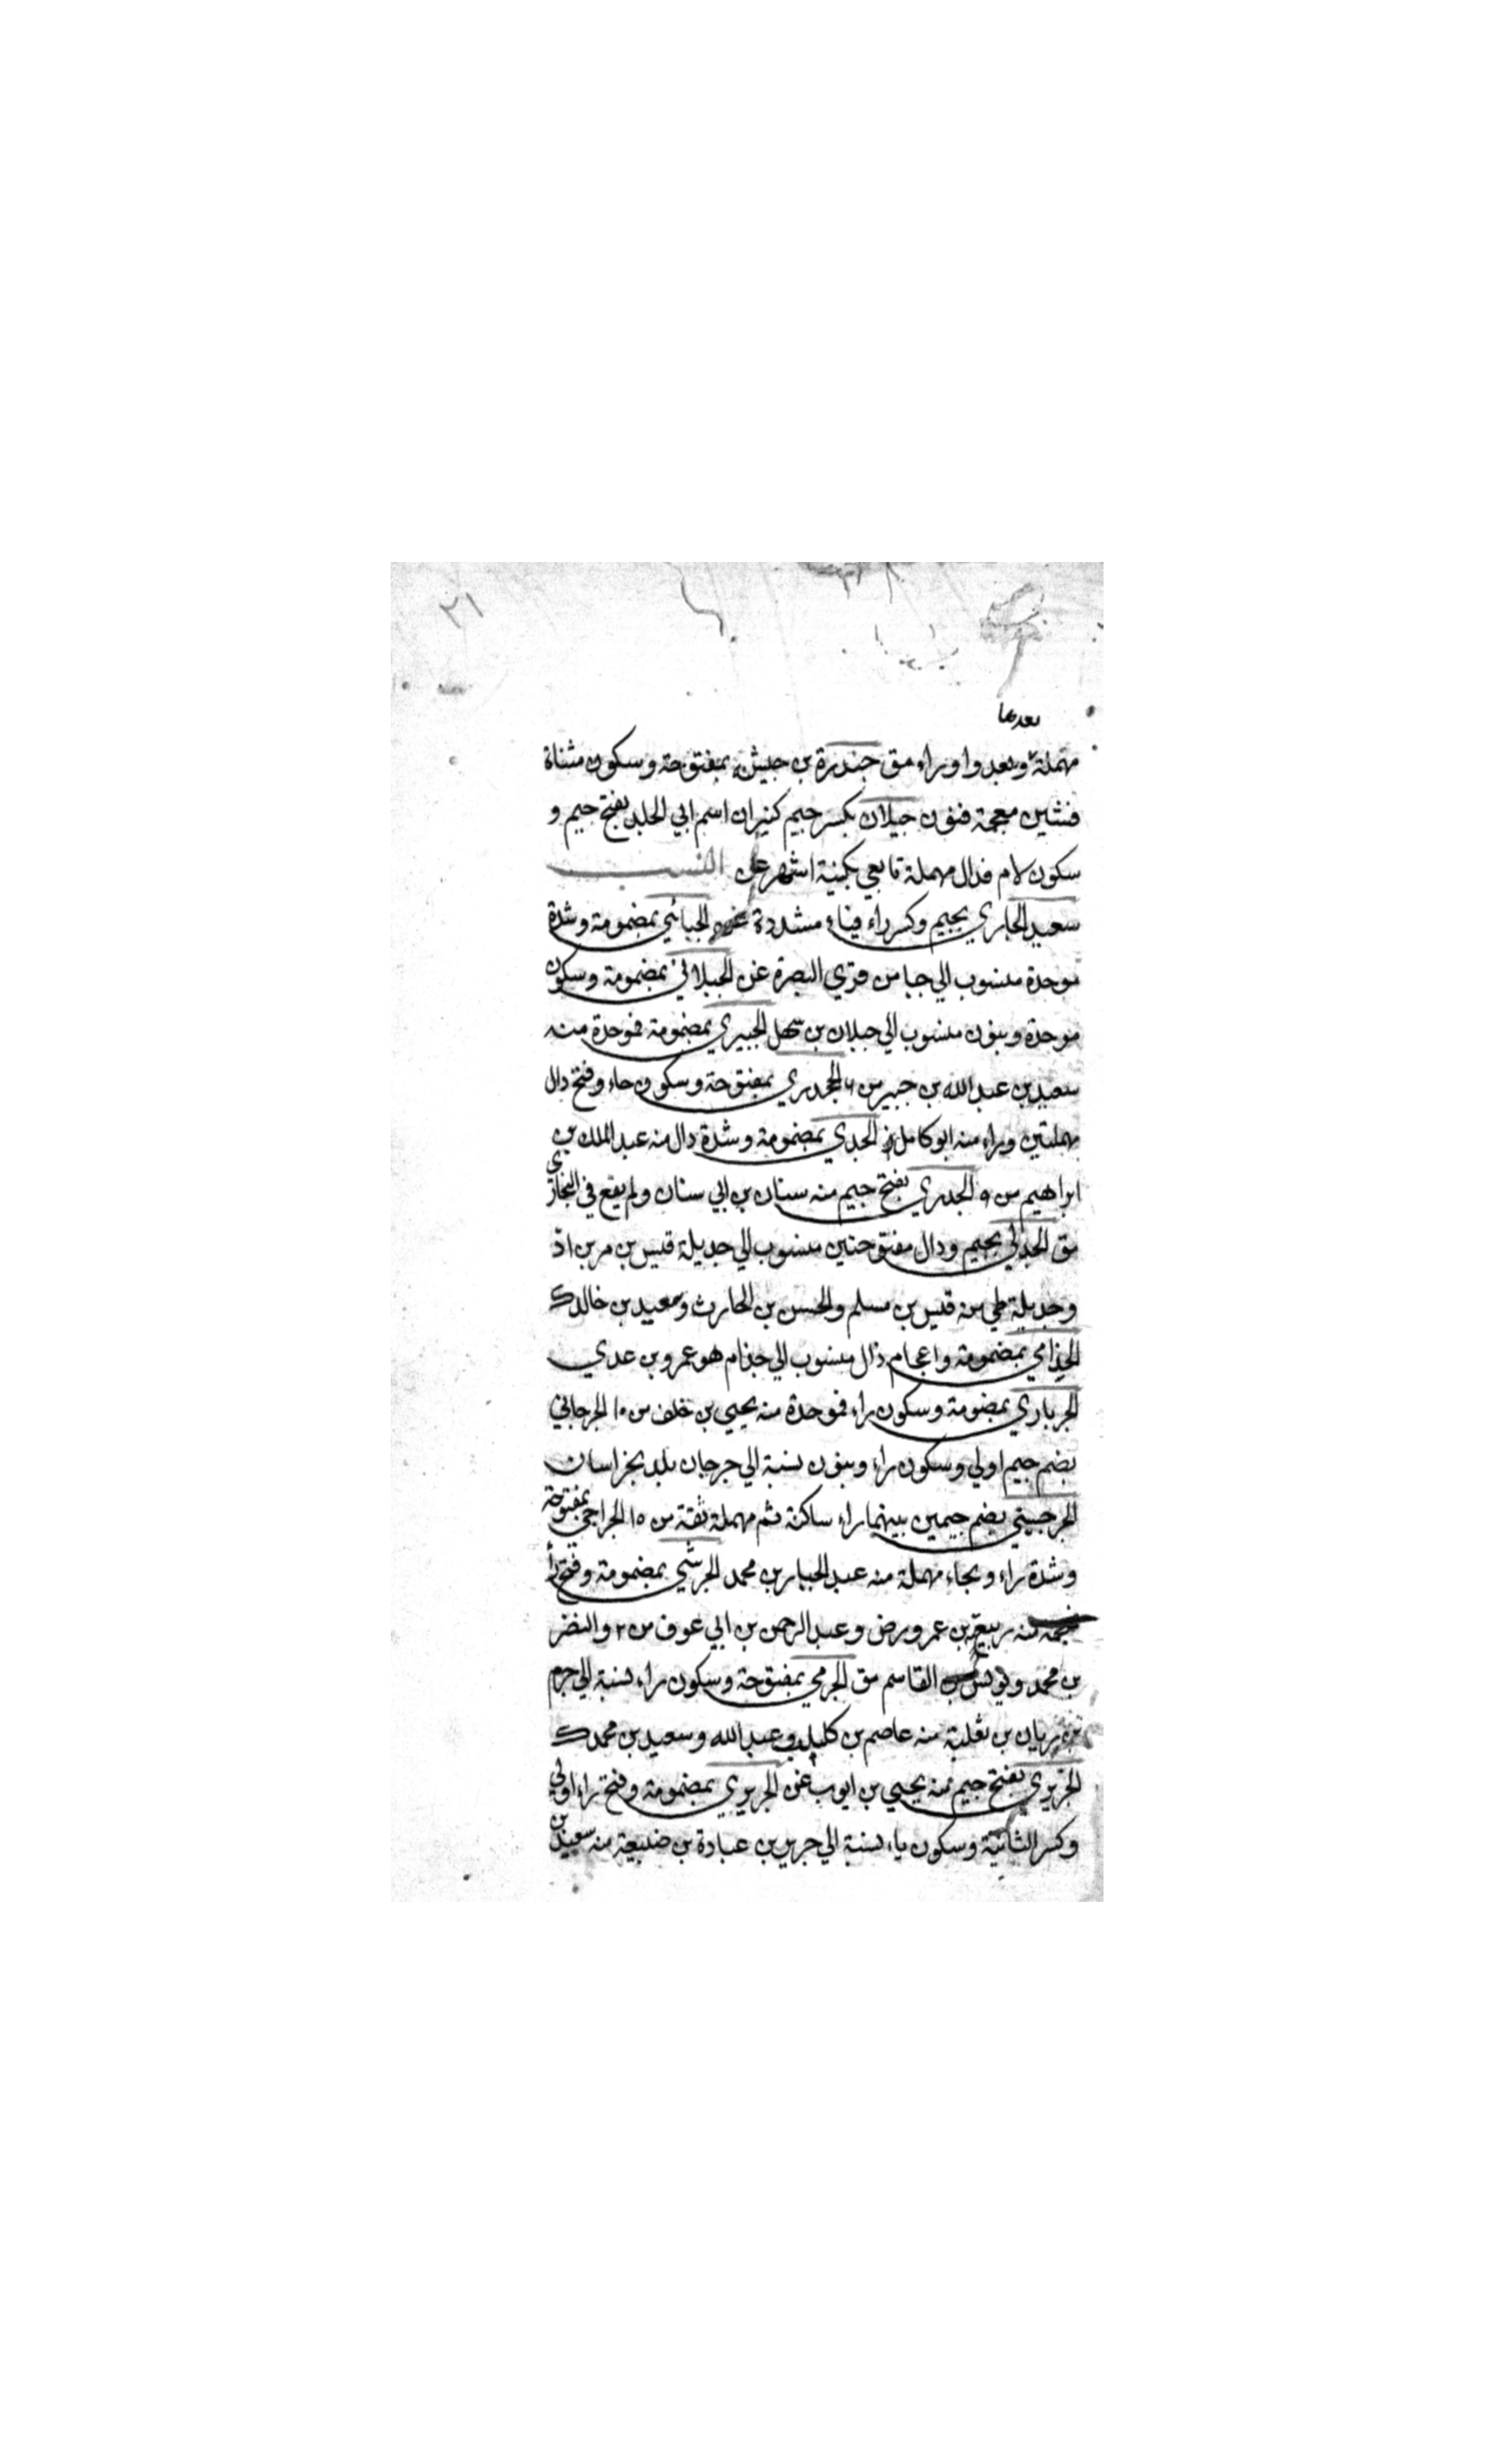 ٢١
بعدها
مهملة وبعد واو راء مق جندرة بن خيشنة بمفتوحة وسكون مثناة
فشين معجمة فنون جيلان بكسر جيم كنيران اسم ابي الجلد بفتح جيم و
سكون لام فدال مهملة تابعي بكنية اشهر على النسب
سعيد الجاري بجيم وكسر راء فياء مشددة الجبائي بمضمومة وشدة
موحدة منسوب الي جبا من قري البصرة غن الجبلاني بمضمومة وسكون
موحدة وبنون منسوب الي جبلان بن سهل الجبيري بمضمومة فموحدة منه
سعيد بن عبد الله بن جبير من ٦ الجحدري بمفتوحة وسكون حاء وفتح دال
مهملتين وراء منه ابو كامل الجدي بمضمومة وشدة دال منه عبد الملك بن
ابراهيم من ٩ الجدري بفتح جيم منه سنان بن ابي سنان ولم يقع في البخاري
مق الجدلي بجيم ودال مفتوحتين منسوب الي جديلة قيس بن مر بن ادّ
وجديلة طي منه قيس بن مسلم والحسن بن الحارث ومعبد بن خالد ك
الجذامي بمضمومة واعجام ذال منسوب الي جذام هو عمرو بن عدي
الجرباري بمضومة وسكون راء فموحدة منه يحيي بن خلف من ١٠ الجرجاني
بضم جيم اولي وسكون راء وبنون نسبة الي جرجان بلد بخراسان
الجرجسيّ بضم جيمين بينهما راء ساكنة ثم مهملة ثقة من ١٥ الجراحي بمفتوحة
وشدة راء وبحاء مهملة منه عبد الجبار بن محمد الجرشي بمضمومة وفتح راء
منه ربيعة بن عمرو رض وعبد الرحمن بن ابي عوف من ٢ والنضر
بن محمد ويونس بن القاسم مق الجرمي بمفتوحة وسكون راء نسبة الي جرم
بن ريان بن ثعلبة منه عاصم بن كليب وعبد الله وسعيد بن محمد ك
الجريري بفتح جيم منه يحيي بن ايوب غن الجريري بمضمومة وفتح راء اولي
وكسر الثانية وسكون ياء نسبة الي جرير بن عبادة بن ضبيعة منه سعيد بن